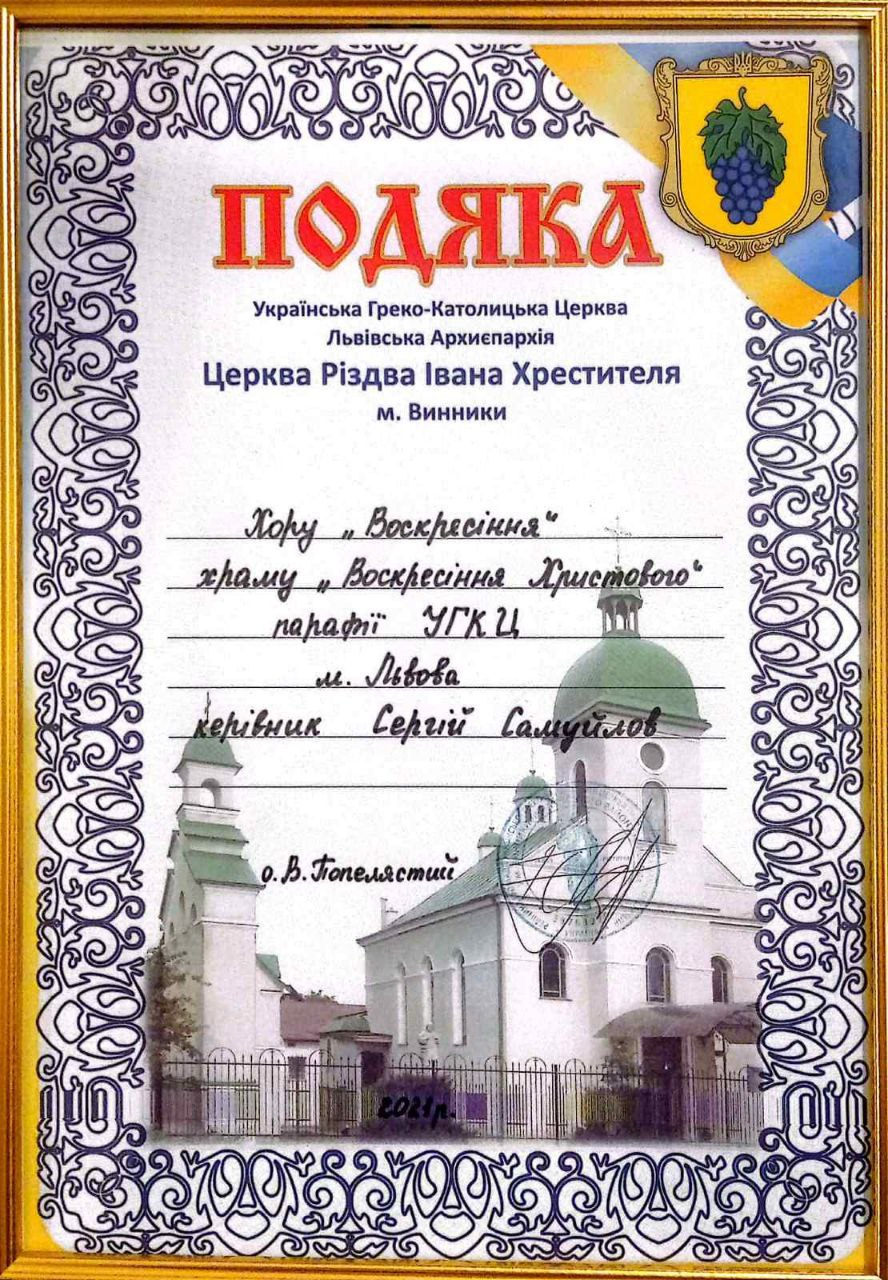 ПОДЯКА
Українська Греко-Католицька Церква
Львівська Архиєпархія
Церква Різдва Івана Хрестителя
м. Винники
Хору „Воскресіння“
храму „Воскресіння Христового“
парафії УГКЦ
м. Львова
керівник Сергій Самуйлов
о. В. Попелястий
2021р.